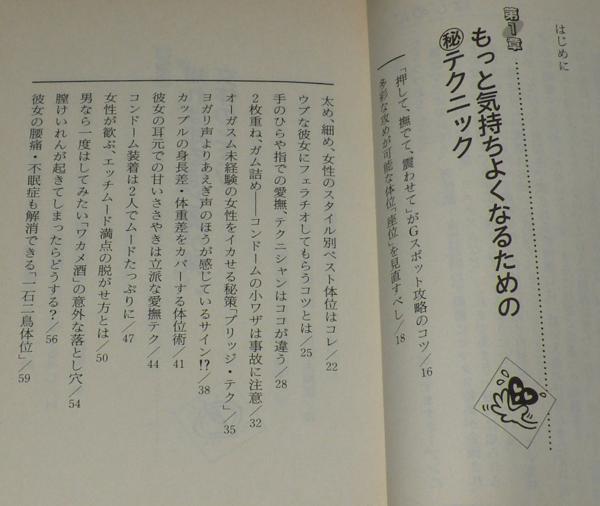 はじめに
第1章
もっと気持ちよくなるための
㊙テクニック
「押して、撫でて、震わせて」がGスポット攻略のコツ/16
多彩な攻めが可能な体位「座位」を見直すべし/18
太め、細め、女性のスタイル別ベスト体位はコレ/22
ウブな彼女にフェラチオしてもらうコツとは/25
手のひらや指での愛撫、テクニシャンはココが違う/28
2枚重ね、ガム詰め——コンドームの小ワザは事故に注意/32
オーガスム未経験の女性をイカせる秘策「ブリッジ・テク」/35
ヨガリ声よりあえぎ声のほうが感じているサイン!?/38
カップルの身長差・体重差をカバーする体位術/41
彼女の耳元での甘いささやきは立派な愛撫テク/44
コンドーム装着は2人でムードたっぷりに/47
女性が歓ぶ、エッチムード満点の脱がせ方とは/50
男なら一度はしてみたい「ワカメ酒」の意外な落とし穴/54
膣けいれんが起きてしまったらどうする?/56
彼女の腰痛・不眠症も解消できる「一石二鳥体位」/59